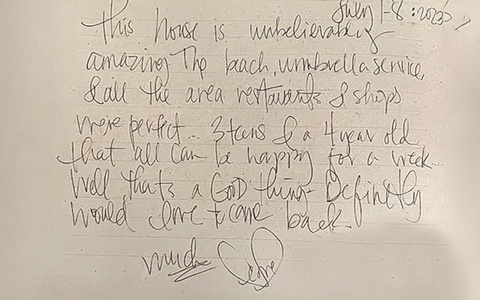 July 1-8 : 2023
This house is unbelievably
amazing The beach, umbrella service,
& all the area restaurants & shops
were perfect... 3 teens & a 4 year old
that all can be happy for a week...
Well that's a GOOD thing - Definetly
would love to come back.
much